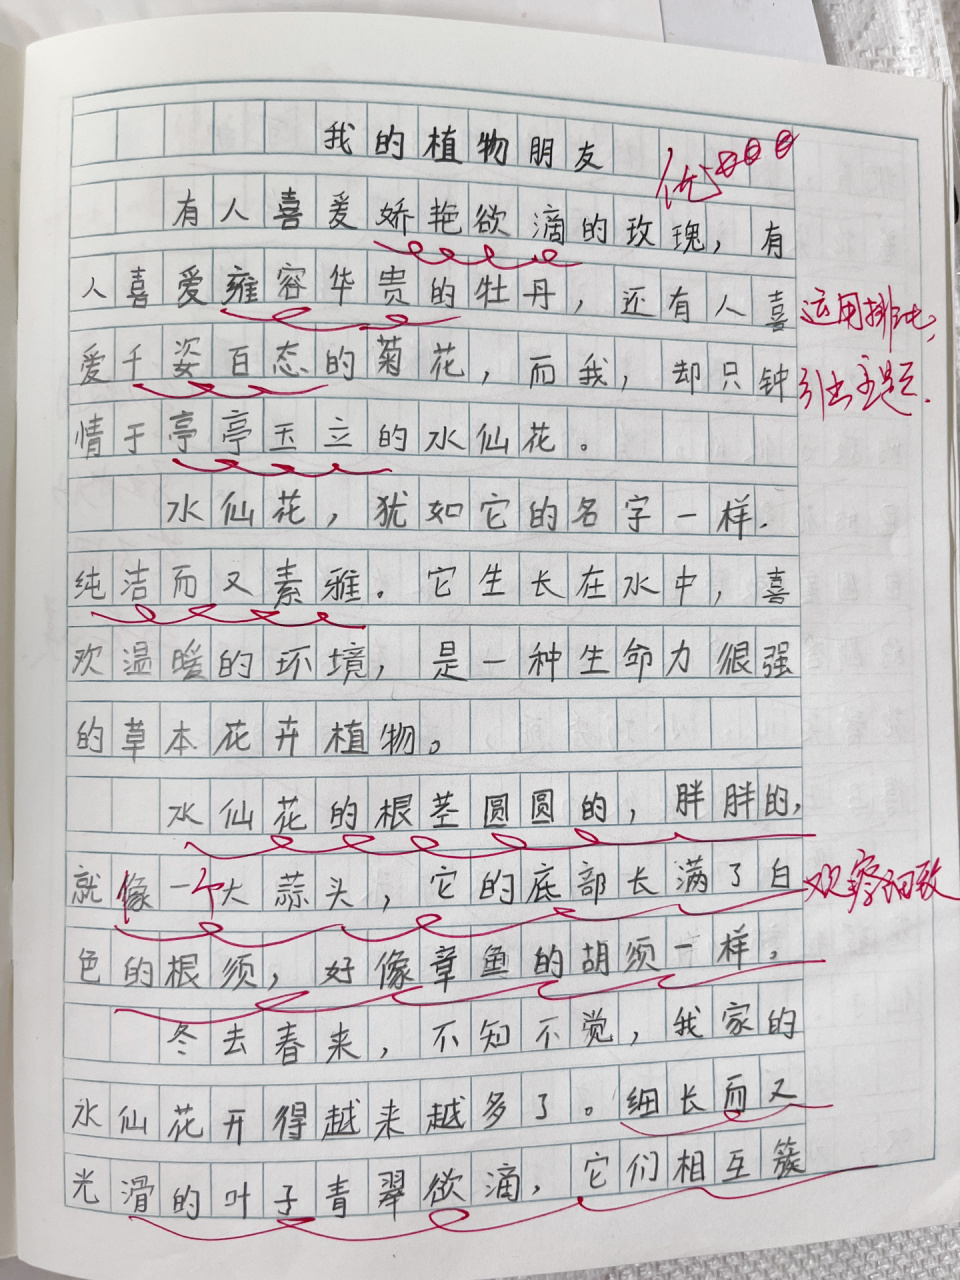 我的植物朋友
优
有人喜爱娇艳欲滴的玫瑰，有
人喜爱雍容华贵的牡丹，还有人喜
运用排比，
爱千姿百态的菊花，而我，却只钟
引出主题.
情于亭亭玉立的水仙花。
水仙花，犹如它的名字一样，
纯洁而又素雅。它生长在水中，喜
欢温暖的环境，是一种生命力很强
的草本花卉植物。
水仙花的根茎圆圆的，胖胖的，
就像一个大蒜头，它的底部长满了白
观察细致
色的根须，好像章鱼的胡须一样。
冬去春来，不知不觉，我家的
水仙花开得越来越多了。细长而又
光滑的叶子青翠欲滴，它们相互簇